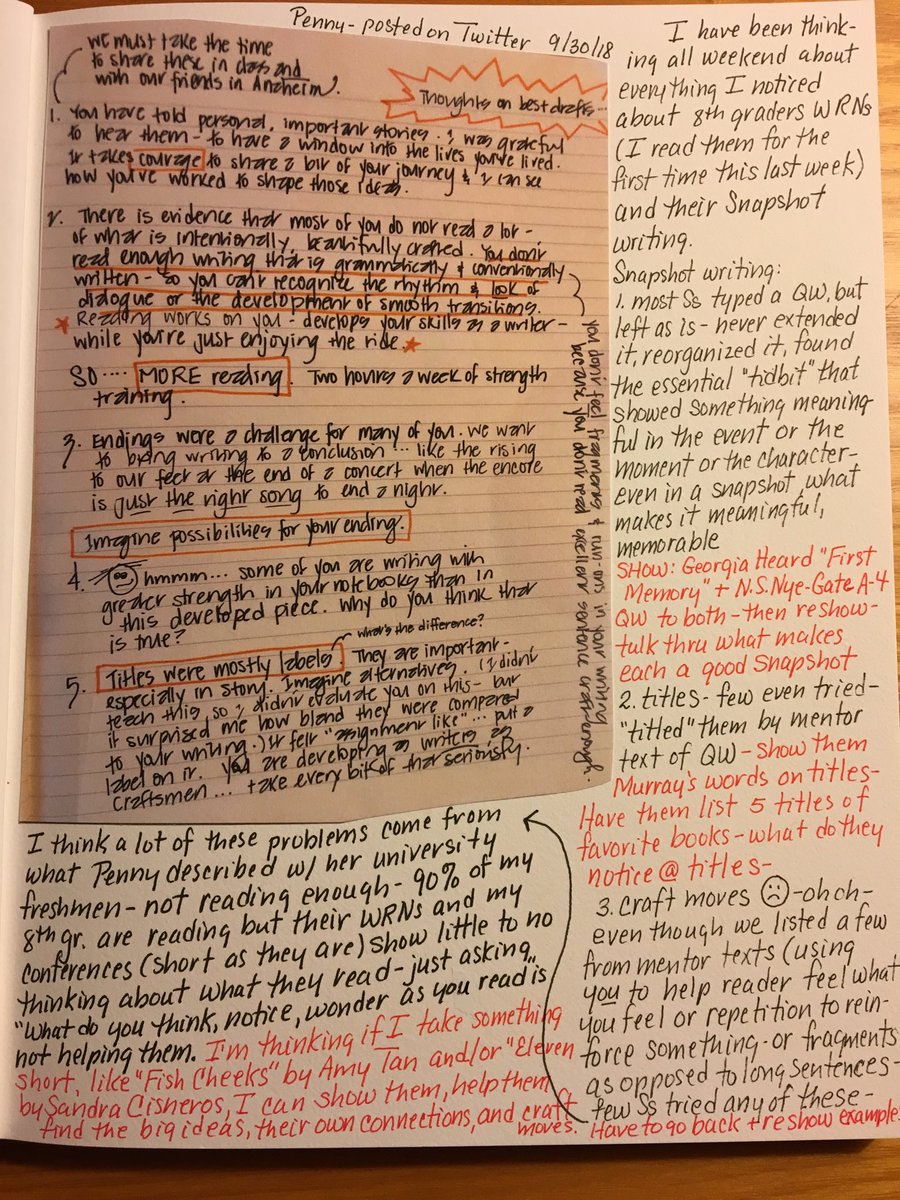 Penny - posted on Twitter 9/30/18
we must take the time
to share these in class and
with our friends in Anaheim.
Thoughts on best drafts...
1. You have told personal, important stories. I was grateful
to hear them - to have a window into the lives you've lived.
It takes courage to share a bit of your journey & I can see
how you've worked to shape those ideas.
2. There is evidence that most of you do not read a lot -
of what is intentionally, beautifully crafted. You don't
read enough writing that is grammatically & conventionally
written - so you can't recognize the rhythm & look of
dialogue or the development of smooth transitions.
Reading works on you - develops your skills as a writer -
while you're just enjoying the ride.
SO .... MORE reading. Two hours a week of strength
training.
you don't feel fragments & run-ons in your writing
because you don't read excellent sentence craft - enough.
3. Endings were a challenge for many of you. We want
to bring writing to a conclusion ... like the rising
to our feet at the end of a concert when the encore
is just the right song to end a night.
Imagine possibilities for your ending.
4. hmmm... some of you are writing with
greater strength in your notebooks than in
this developed piece. Why do you think that
is true?
what's the difference?
5. Titles were mostly labels. They are important -
especially in story. Imagine alternatives. (I didn't
teach this so I didn't evaluate you on this - but
it surprised me how bland they were compared
to your writing.) It felt "assignment like" ... put a
label on it. You are developing as writers as
craftsmen ... take every bit of that seriously.
I think a lot of these problems come from
what Penny described w/ her university
freshmen - not reading enough - 90% of my
8th gr. are reading but their WRNs and my
conferences (short as they are) show little to no
thinking about what they read - just asking
"What do you think, notice, wonder as you read" is
not helping them. I'm thinking if I take something
short, like "Fish Cheeks" by Amy Tan and/or "Eleven"
by Sandra Cisneros, I can show them, help them
find the big ideas, their own connections, and craft
moves.
I have been think-
ing all weekend about
everything I noticed
about 8th graders WRNs
(I read them for the
first time this last week)
and their Snapshot
writing.
Snapshot writing:
1. most Ss typed a QW, but
left as is - never extended
it, reorganized it, found
the essential "tidbit" that
showed something meaning
ful in the event or the
moment or the character -
even in a snapshot, what
makes it meaningful,
memorable
SHOW: Georgia Heard "First
Memory" + N.S. Nye - Gate A-4
QW to both - then reshow -
talk thru what makes
each a good Snapshot
2. titles - few even tried -
"titled" them by mentor
text of QW - show them
Murray's words on titles -
Have them list 5 titles of
favorite books - what do they
notice @ titles -
3. craft moves - oh ch -
even though we listed a few
from mentor texts (using
you to help reader feel what
you feel or repetition to rein-
force something - or fragments
as opposed to long sentences -
few Ss tried any of these -
Have to go back + reshow example.